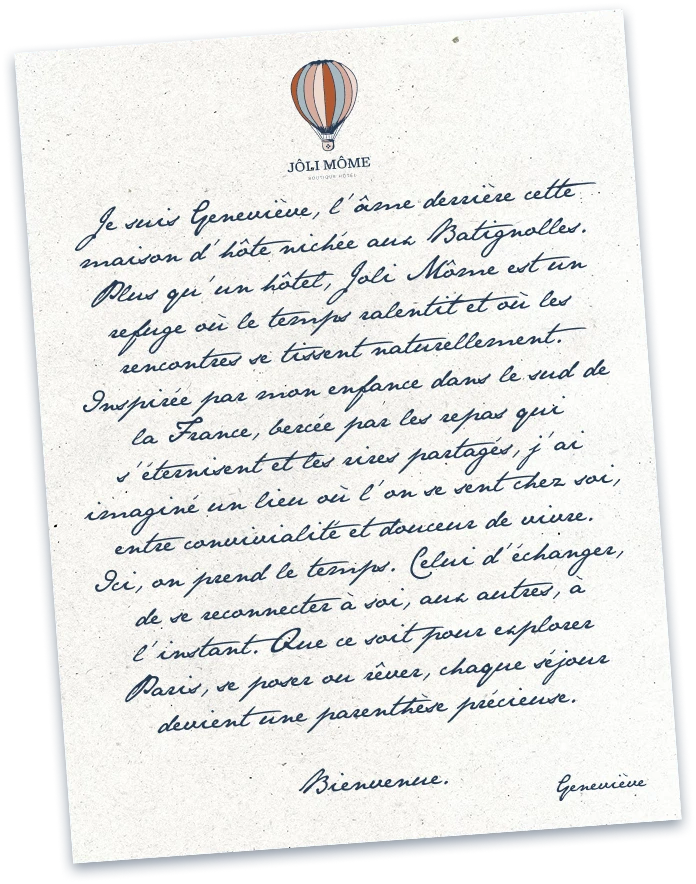 JÔLI MÔME
BOUTIQUE HÔTEL
Je suis Geneviève, l'âme derrière cette
maison d'hôte nichée aux Batignolles.
Plus qu'un hôtel, Joli Môme est un
refuge où le temps ralentit et où les
rencontres se tissent naturellement.
Inspirée par mon enfance dans le sud de
la France, bercée par les repas qui
s'éternisent et les rires partagés, j'ai
imaginé un lieu où l'on se sent chez soi,
entre convivialité et douceur de vivre.
Ici, on prend le temps. Celui d'échanger,
de se reconnecter à soi, aux autres, à
l'instant. Que ce soit pour explorer
Paris, se poser ou rêver, chaque séjour
devient une parenthèse précieuse.
Bienvenue.
Geneviève